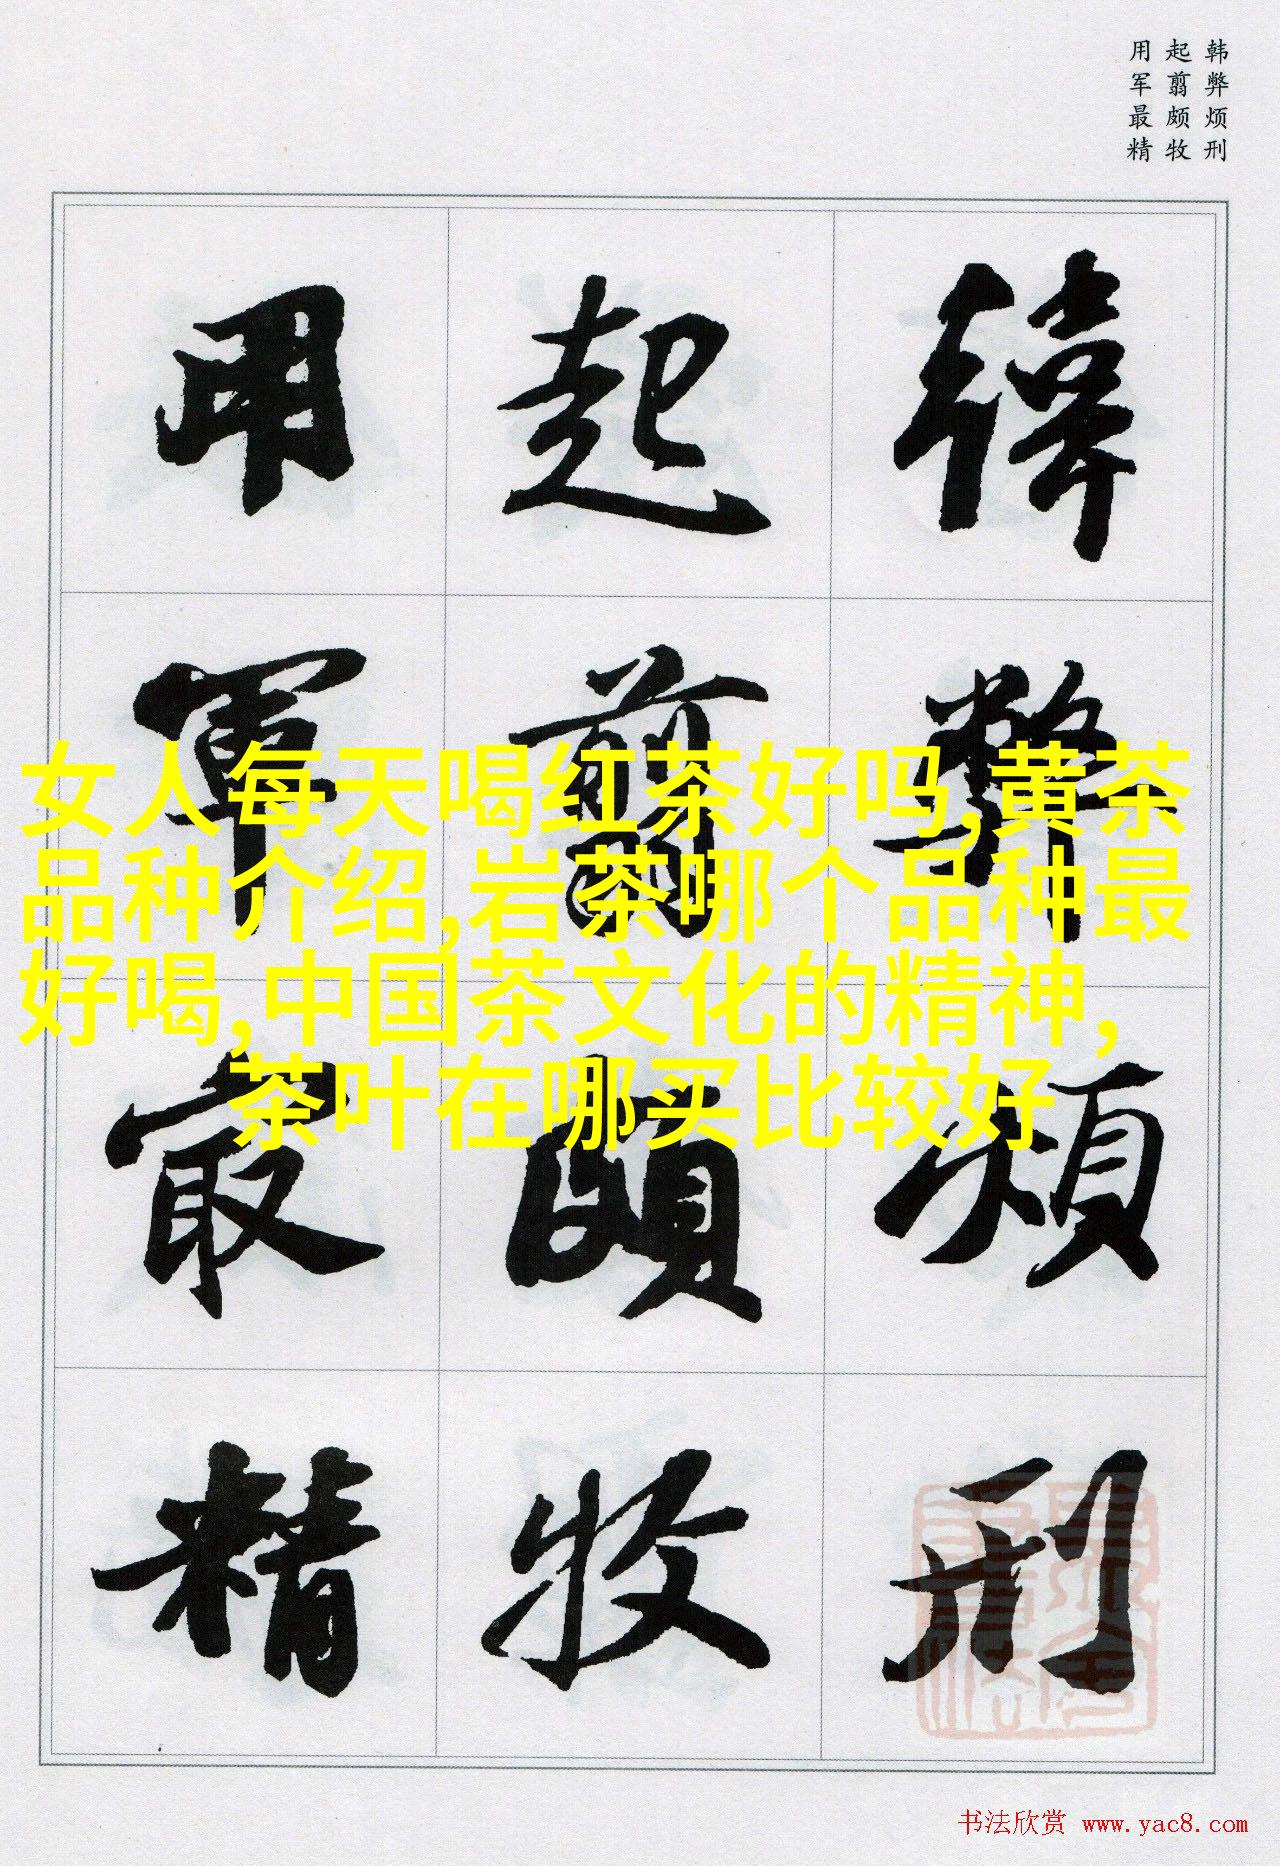 韩弊烦刑
起翦颇牧
用军最精
韓弊煩刑
起翦頗牧
用軍最精
女人每天喝红茶好吗,黄茶
品种介绍,岩茶哪个品种最
好喝,中国茶文化的精神,
茶叶在哪买比较好
书法欣赏 www.yac8.com